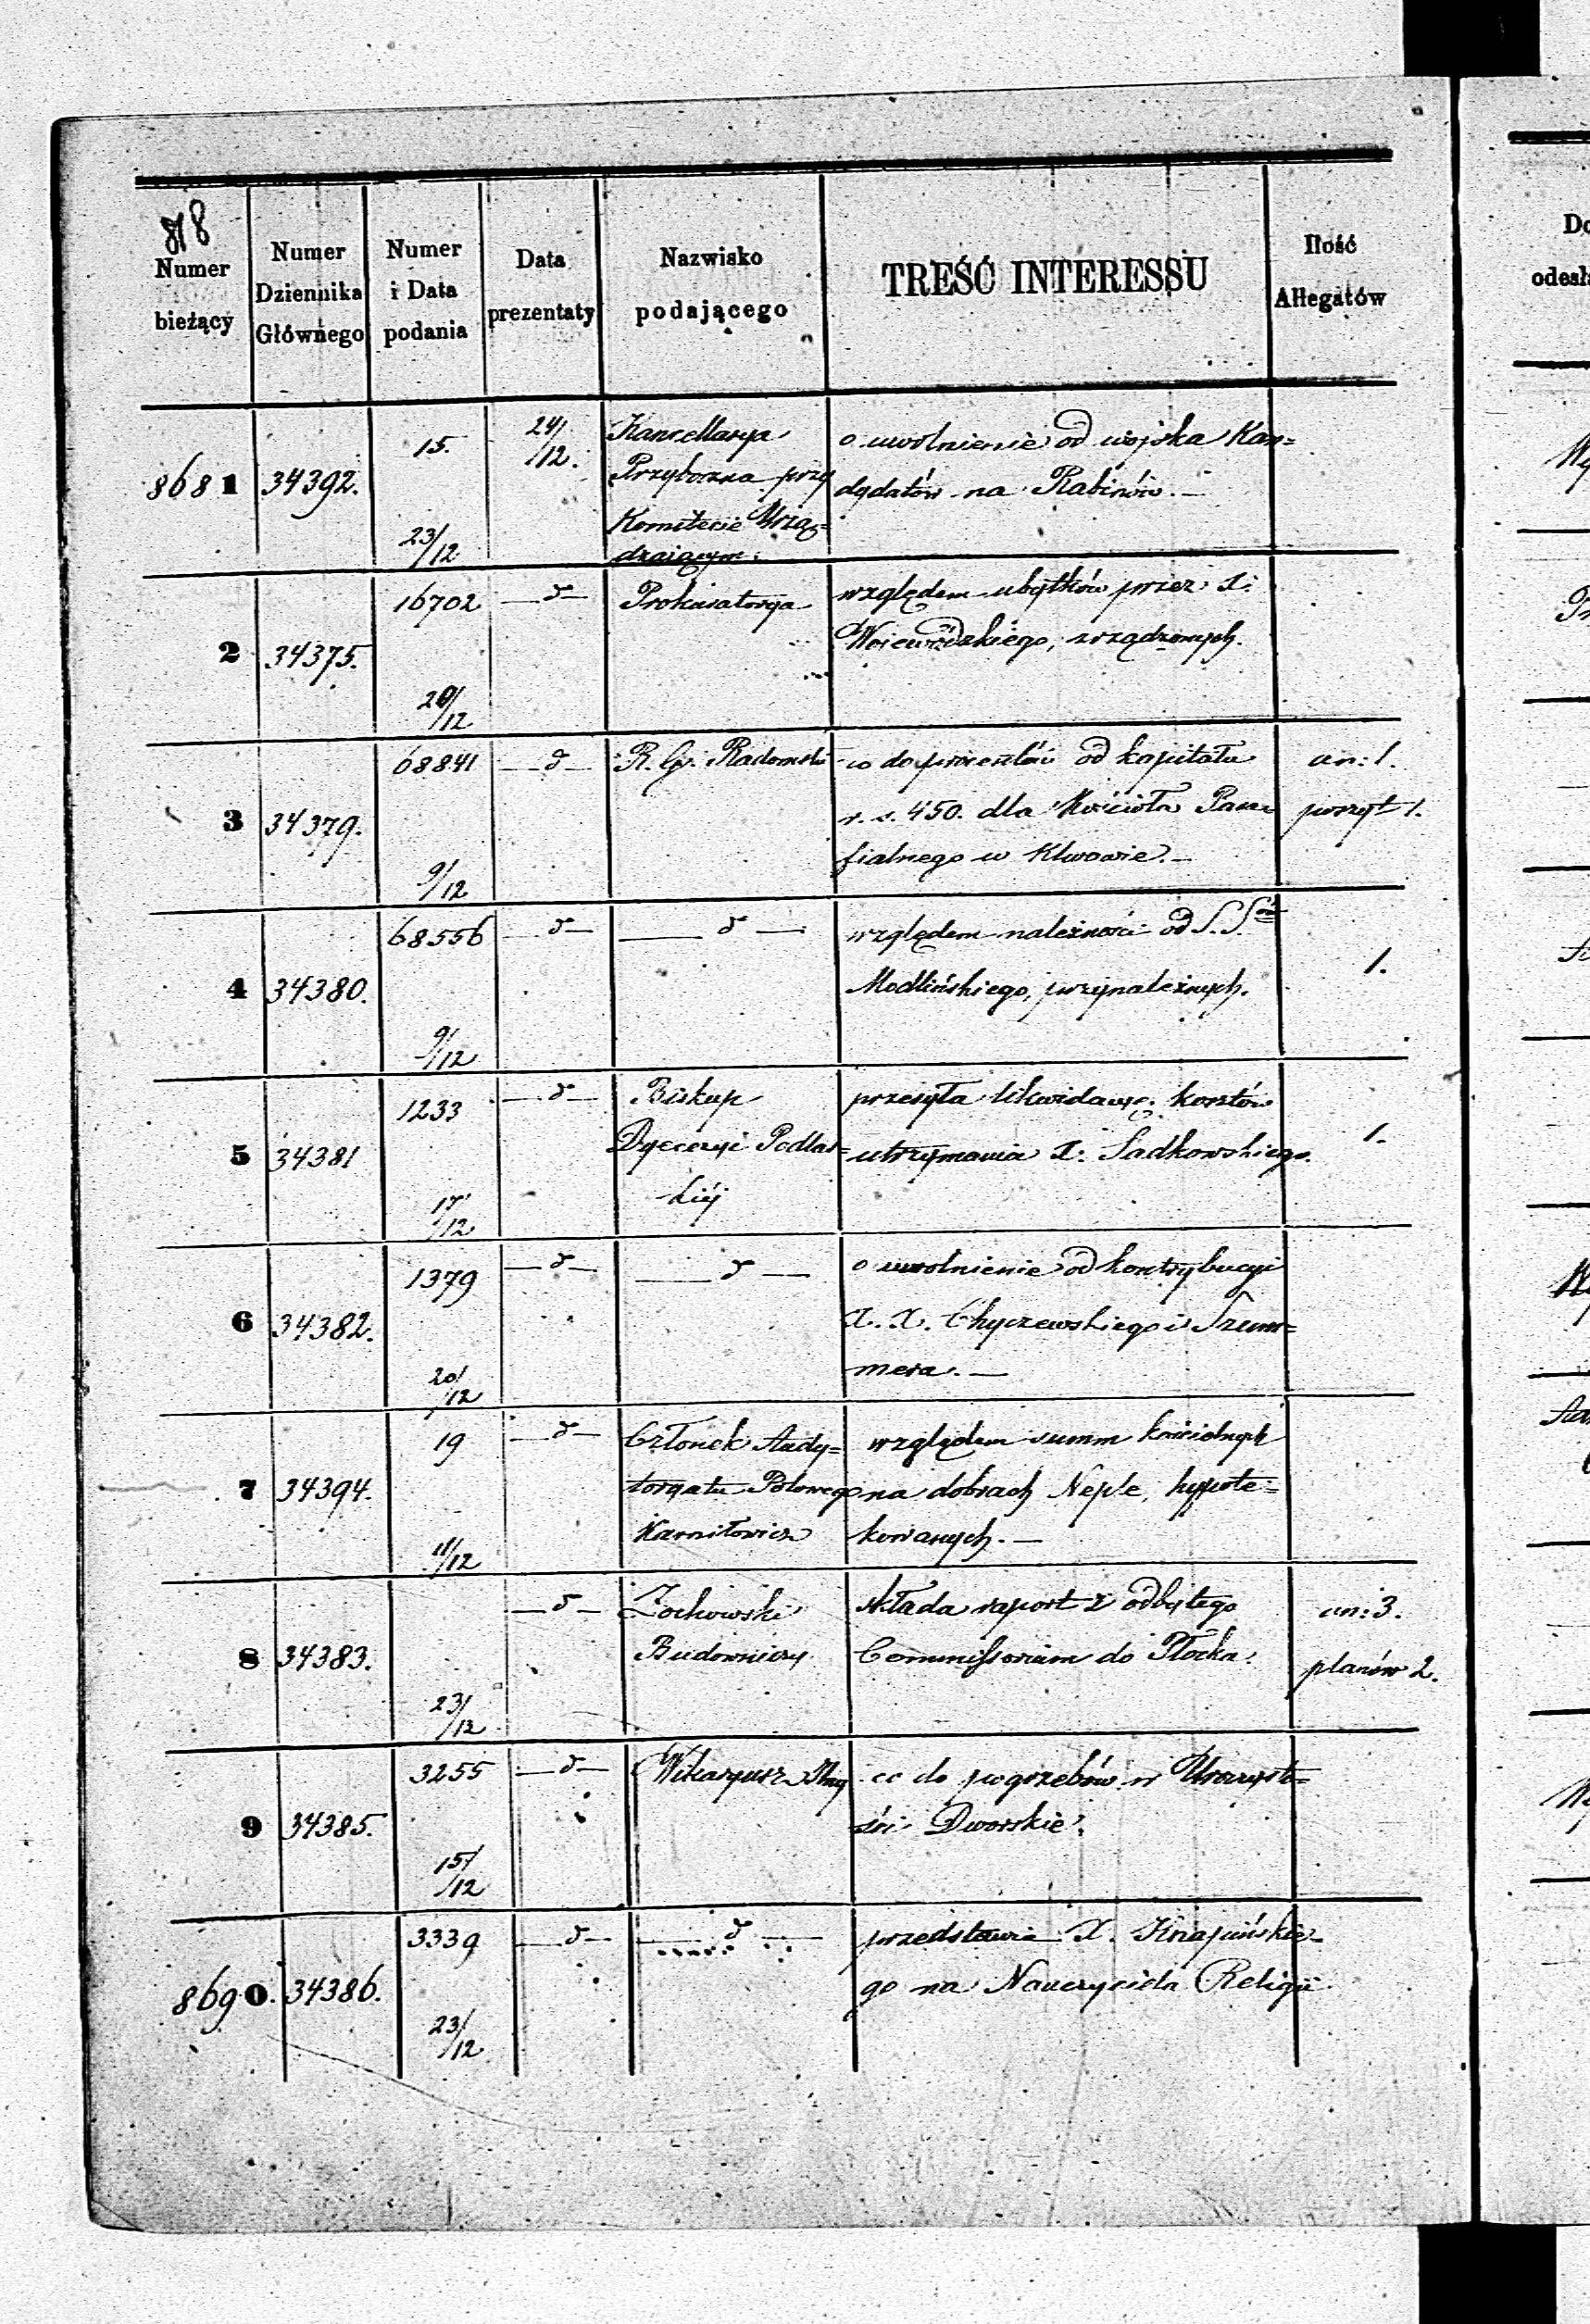 818
Numer bieżący
Numer Dziennika Głównego
Numer i Data podania
Data prezentaty
Nazwisko podającego
TREŚĆ INTERESSU
Ilość Allegatów
Do
odesła
8681 34392. 15. 23/12 24/12. Kancellarya o uwolnienie od wojska Kan=
Przyboczna przy dydatów na Rabinów. —
Komitecie Urzą=
dzającym.
2 34375. 16702 20/12 — d — Prokuratorya względem ubytków przez X.
Wojewódzkiego, zrządzonych.
3 34379. 68841 9/12 — d — R. G. Radomski co do procentów od kapitału an: 1.
r. s. 450. dla Kościoła Para= poszyt 1.
fialnego w Klwowie. —
4 34380. 68556 9/12 — d — — d — względem należności od S. Sów 1.
Modlińskiego, przynależnych.
5 34381 1233 17/12 — d — Biskup przesyła likwidacyę kosztów 1.
Dyecezyi Podlas= utrzymania X. Sadkowskiego.
kiéj
6 34382. 1379 20/12 — d — — d — o uwolnienie od kontrybucyi
X. X. Chyczewskiego i Szum=
mera. —
7 34394. 19 11/12 — d — Członek Audy= względem summ kościelnych
toryatu Polowego na dobrach Neple, hypote=
Karniłowicz kowanych. —
8 34383. 23/12 — d — Zochowski składa raport z odbytego an: 3.
Budowniczy Commissorium do Płocka. planów 2.
9 34385. 3255 15/12 — d — Wikaryusz co do pogrzebów w Uroczysto=
ści Dworskie.
8690. 34386. 3339 23/12 — d — — d — przedstawia X. Knapińskie=
go na Nauczyciela Religii